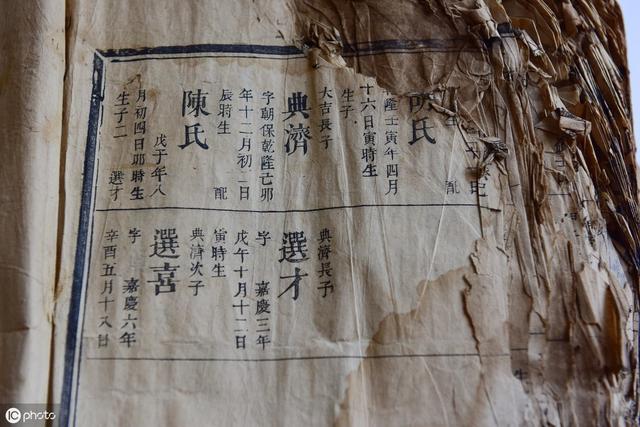 氏
配
隆壬寅年四月
十六日寅時生
生子
大吉長子
典濟
字朝保乾隆亡卯
年十二月初一日
辰時生 配
陳氏
戊子年八
月初四日卯時生
生子二 選才
典濟長子
選才
字 嘉慶三年
戊午十月十二日
寅時生
典濟次子
選喜
字 嘉慶六年
辛酉五月十八日
iC photo